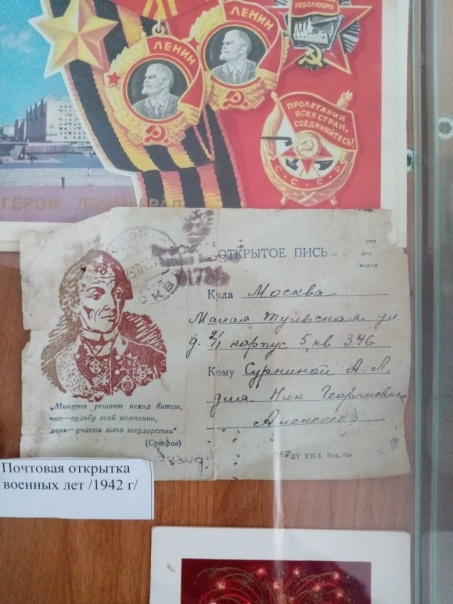 ЛЕНИН
ЛЕНИН
РЕВОЛЮЦИИ
ПРОЛЕТАРИИ
ВСЕХ СТРАН,
СОЕДИНЯЙТЕСЬ!
С С С Р
ГЕРОЙ ЛЕНИНГРАД
ОТКРЫТОЕ ПИСЬ
Куда Москва
Малая Тульская ул
д. 2/1 корпус 5, кв 346
Кому Сурниной А. Л.
для Ник Георгиевича
„Минута решает исход битвы,
час—судьбу всей кампании,
день—участь всего государства“
(Суворов)
Почтовая открытка
военных лет /1942 г/